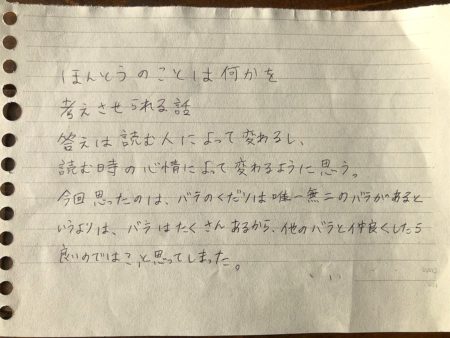 ほんとうのことは何かを
考えさせられる話
答えは読む人によって変わるし、
読む時の心情によって変わるように思う。
今回思ったのは、バラのくだりは唯一無二のバラがあると
いうよりは、バラはたくさんあるから、他のバラと仲良くしたら
良いのでは?と思ってしまった。